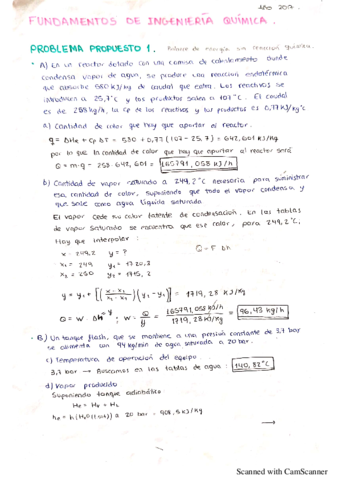 AÑO 2017.
FUNDAMENTOS DE INGENIERÍA QUÍMICA.
PROBLEMA PROPUESTO 1. Balance de energía sin reacción química.
• A) En un reactor dotado con una camisa de calentamiento donde
condensa vapor de agua, se produce una reacción endotérmica
que absorbe 580 KJ/kg de caudal que entra. Los reactivos se
introducen a 25,7°C y los productos salen a 107°C. El caudal
es de 258 kg/h, la Cp de los reactivos y los productos es 0,77 KJ/kg°C
a) Cantidad de calor que hay que aportar al reactor.
q = ΔHe + Cp ΔT = 580 + 0,77 (107 - 25,7) = 642,601 KJ/kg
por lo que la cantidad de calor que hay que aportar al reactor será
Q = m·q = 258 · 642,601 = 165791,058 KJ/h
b) Cantidad de vapor saturado a 249,2°C necesaria para suministrar
esa cantidad de calor, suponiendo que todo el vapor condensa y
que sale como agua líquida saturada
El vapor cede su calor latente de condensación. En las tablas
de vapor saturado se encuentra que ese calor, para 249,2°C,
Hay que interpolar:
x = 249,2 y = ?
x₁ = 249 y₁ = 1720,3
x₂ = 250 y₂ = 1715,2
y = y₁ + [(x - x₁ / x₂ - x₁)(y₂ - y₁)] = 1719,28 KJ/kg
Q = W · ΔH ; W = Q/y = 165791,058 KJ/h / 1719,28 KJ/kg = 96,43 kg/h
• B) Un tanque flash, que se mantiene a una presión constante de 3,7 bar
se alimenta con 94 kg/min de agua saturada a 20 bar.
c) Temperatura de operación del equipo.
3,7 bar → Buscamos en las tablas de agua: 140,82°C
d) Vapor producido
Suponiendo tanque adiabático
Scanned with CamScanner